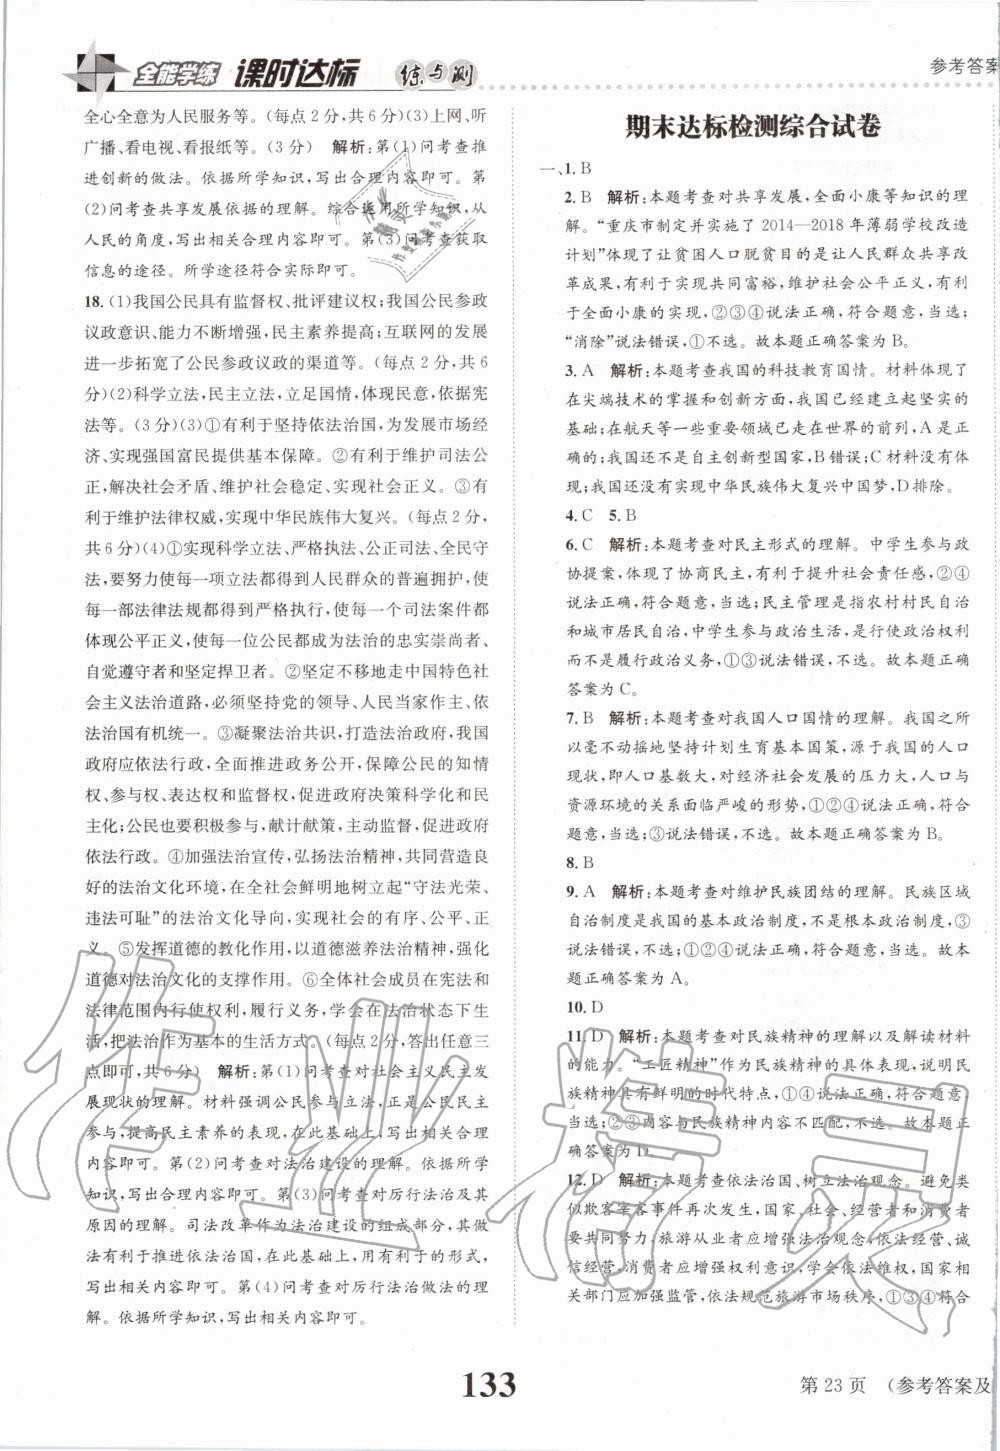 全能学练 课时达标 练与测
参考答案
全心全意为人民服务等。(每点2分,共6分)(3)上网、听
广播、看电视、看报纸等。(3分) 解析:第(1)问考查推
进创新的做法。依据所学知识,写出合理内容即可。第
(2)问考查共享发展依据的理解。综合运用所学知识,从
人民的角度,写出相关内容即可。第(3)问考查获取
信息的途径。所学途径符合实际即可。
18. (1)我国公民具有监督权、批评建议权;我国公民参政
议政意识、能力不断增强,民主素养提高;互联网的发展
进一步拓宽了公民参政议政的渠道等。(每点2分,共6
分)(2)科学立法,民主立法,立足国情,体现民意,依据宪
法等。(3分)(3)①有利于坚持依法治国,为发展市场经
济、实现强国富民提供基本保障。②有利于维护司法公
正,解决社会矛盾、维护社会稳定、实现社会正义。③有
利于维护法律权威,实现中华民族伟大复兴。(每点2分,
共6分)(4)①实现科学立法、严格执法、公正司法、全民守
法,要努力使每一项立法都得到人民群众的普遍拥护,使
每一部法律法规都得到严格执行,使每一个司法案件都
体现公平正义,使每一位公民都成为法治的忠实崇尚者、
自觉遵守者和坚定捍卫者。②坚定不移地走中国特色社
会主义法治道路,必须坚持党的领导、人民当家作主、依
法治国有机统一。③凝聚法治共识,打造法治政府,我国
政府应依法行政,全面推进政务公开,保障公民的知情
权、参与权、表达权和监督权,促进政府决策科学化和民
主化;公民也要积极参与,献计献策,主动监督,促进政府
依法行政。④加强法治宣传,弘扬法治精神,共同营造良
好的法治文化环境,在全社会鲜明地树立起“守法光荣、
违法可耻”的法治文化导向,实现社会的有序、公平、正
义。⑤发挥道德的教化作用,以道德滋养法治精神,强化
道德对法治文化的支撑作用。⑥全体社会成员在宪法和
法律范围内行使权利,履行义务,学会在法治状态下生
活,把法治作为基本的生活方式。(每点2分,答出任意三
点即可,共6分) 解析:第(1)问考查对社会主义民主发
展现状的理解。材料强调公民参与立法,正是公民民主
参与,提高民主素养的表现,在此基础上,写出相关合理
内容即可。第(2)问考查对法治建设的理解。依据所学
知识,写出相关内容即可。第(3)问考查对厉行法治及其
原因的理解。司法改革作为法治建设的组成部分,其做
法有利于推进依法治国,在此基础上,用有利于的形式,
写出相关内容即可。第(4)问考查对厉行法治做法的理
解。依据所学知识,写出相关内容即可。
期末达标检测综合试卷
一、1. B
2. B 解析:本题考查对共享发展,全面小康等知识的理
解。“重庆市制定并实施了2014—2018年薄弱学校改造
计划”体现了让贫困人口脱贫目的是让人民群众共享改
革成果,有利于实现共同富裕,维护社会公平正义,有利
于全面小康的实现,②③④说法正确,符合题意,当选;
“消除”说法错误,①不选。故本题正确答案为B。
3. A 解析:本题考查我国的科技教育国情。材料体现了
在尖端技术的掌握和创新方面,我国已经建立起坚实的
基础;在航天等一些重要领域已走在世界的前列,A是正
确的;我国还不是自主创新型国家,B错误;C材料没有体
现;我国还没有实现中华民族伟大复兴中国梦,D排除。
4. C 5. B
6. C 解析:本题考查对民主形式的理解。中学生参与政
协提案,体现了协商民主,有利于提升社会责任感,②④
说法正确,符合题意,当选;民主管理是指农村村民自治
和城市居民自治,中学生参与政治生活,是行使政治权利
而不是履行政治义务,①③说法错误,不选。故本题正确
答案为C。
7. B 解析:本题考查对我国人口国情的理解。我国之所
以毫不动摇地坚持计划生育基本国策,是因为我国的人口
现状,即人口基数大,对经济社会发展的压力大,人口与
资源环境的关系面临严峻的形势,①②④说法正确,符合
题意,当选;③说法错误,不选。故本题正确答案为B。
8. B
9. A 解析:本题考查对维护民族团结的理解。民族区域
自治制度是我国的基本政治制度,不是根本政治制度,③
说法错误,不选;①②④说法正确,符合题意,当选。故本
题正确答案为A。
10. D
11. D 解析:本题考查对民族精神的理解以及解读材料
的能力。“工匠精神”作为民族精神的具体表现,体现了
民族精神具有鲜明的时代特点,①④说法正确,符合题意,
当选;②③内容与民族精神内容不匹配,不选。故本题正确
答案为D。
12. D 解析:本题考查依法治国、树立法治观念。避免类
似欺客宰客事件再次发生,国家、社会、经营者和消费者
要共同努力,旅游从业者应增强法治观念,依法经营、诚
信经营,消费者应增强权利意识,依法理性维权,国家相
关部门应加强监管,依法规范旅游市场秩序,①③④符合
133
第23页 (参考答案及
作业精灵